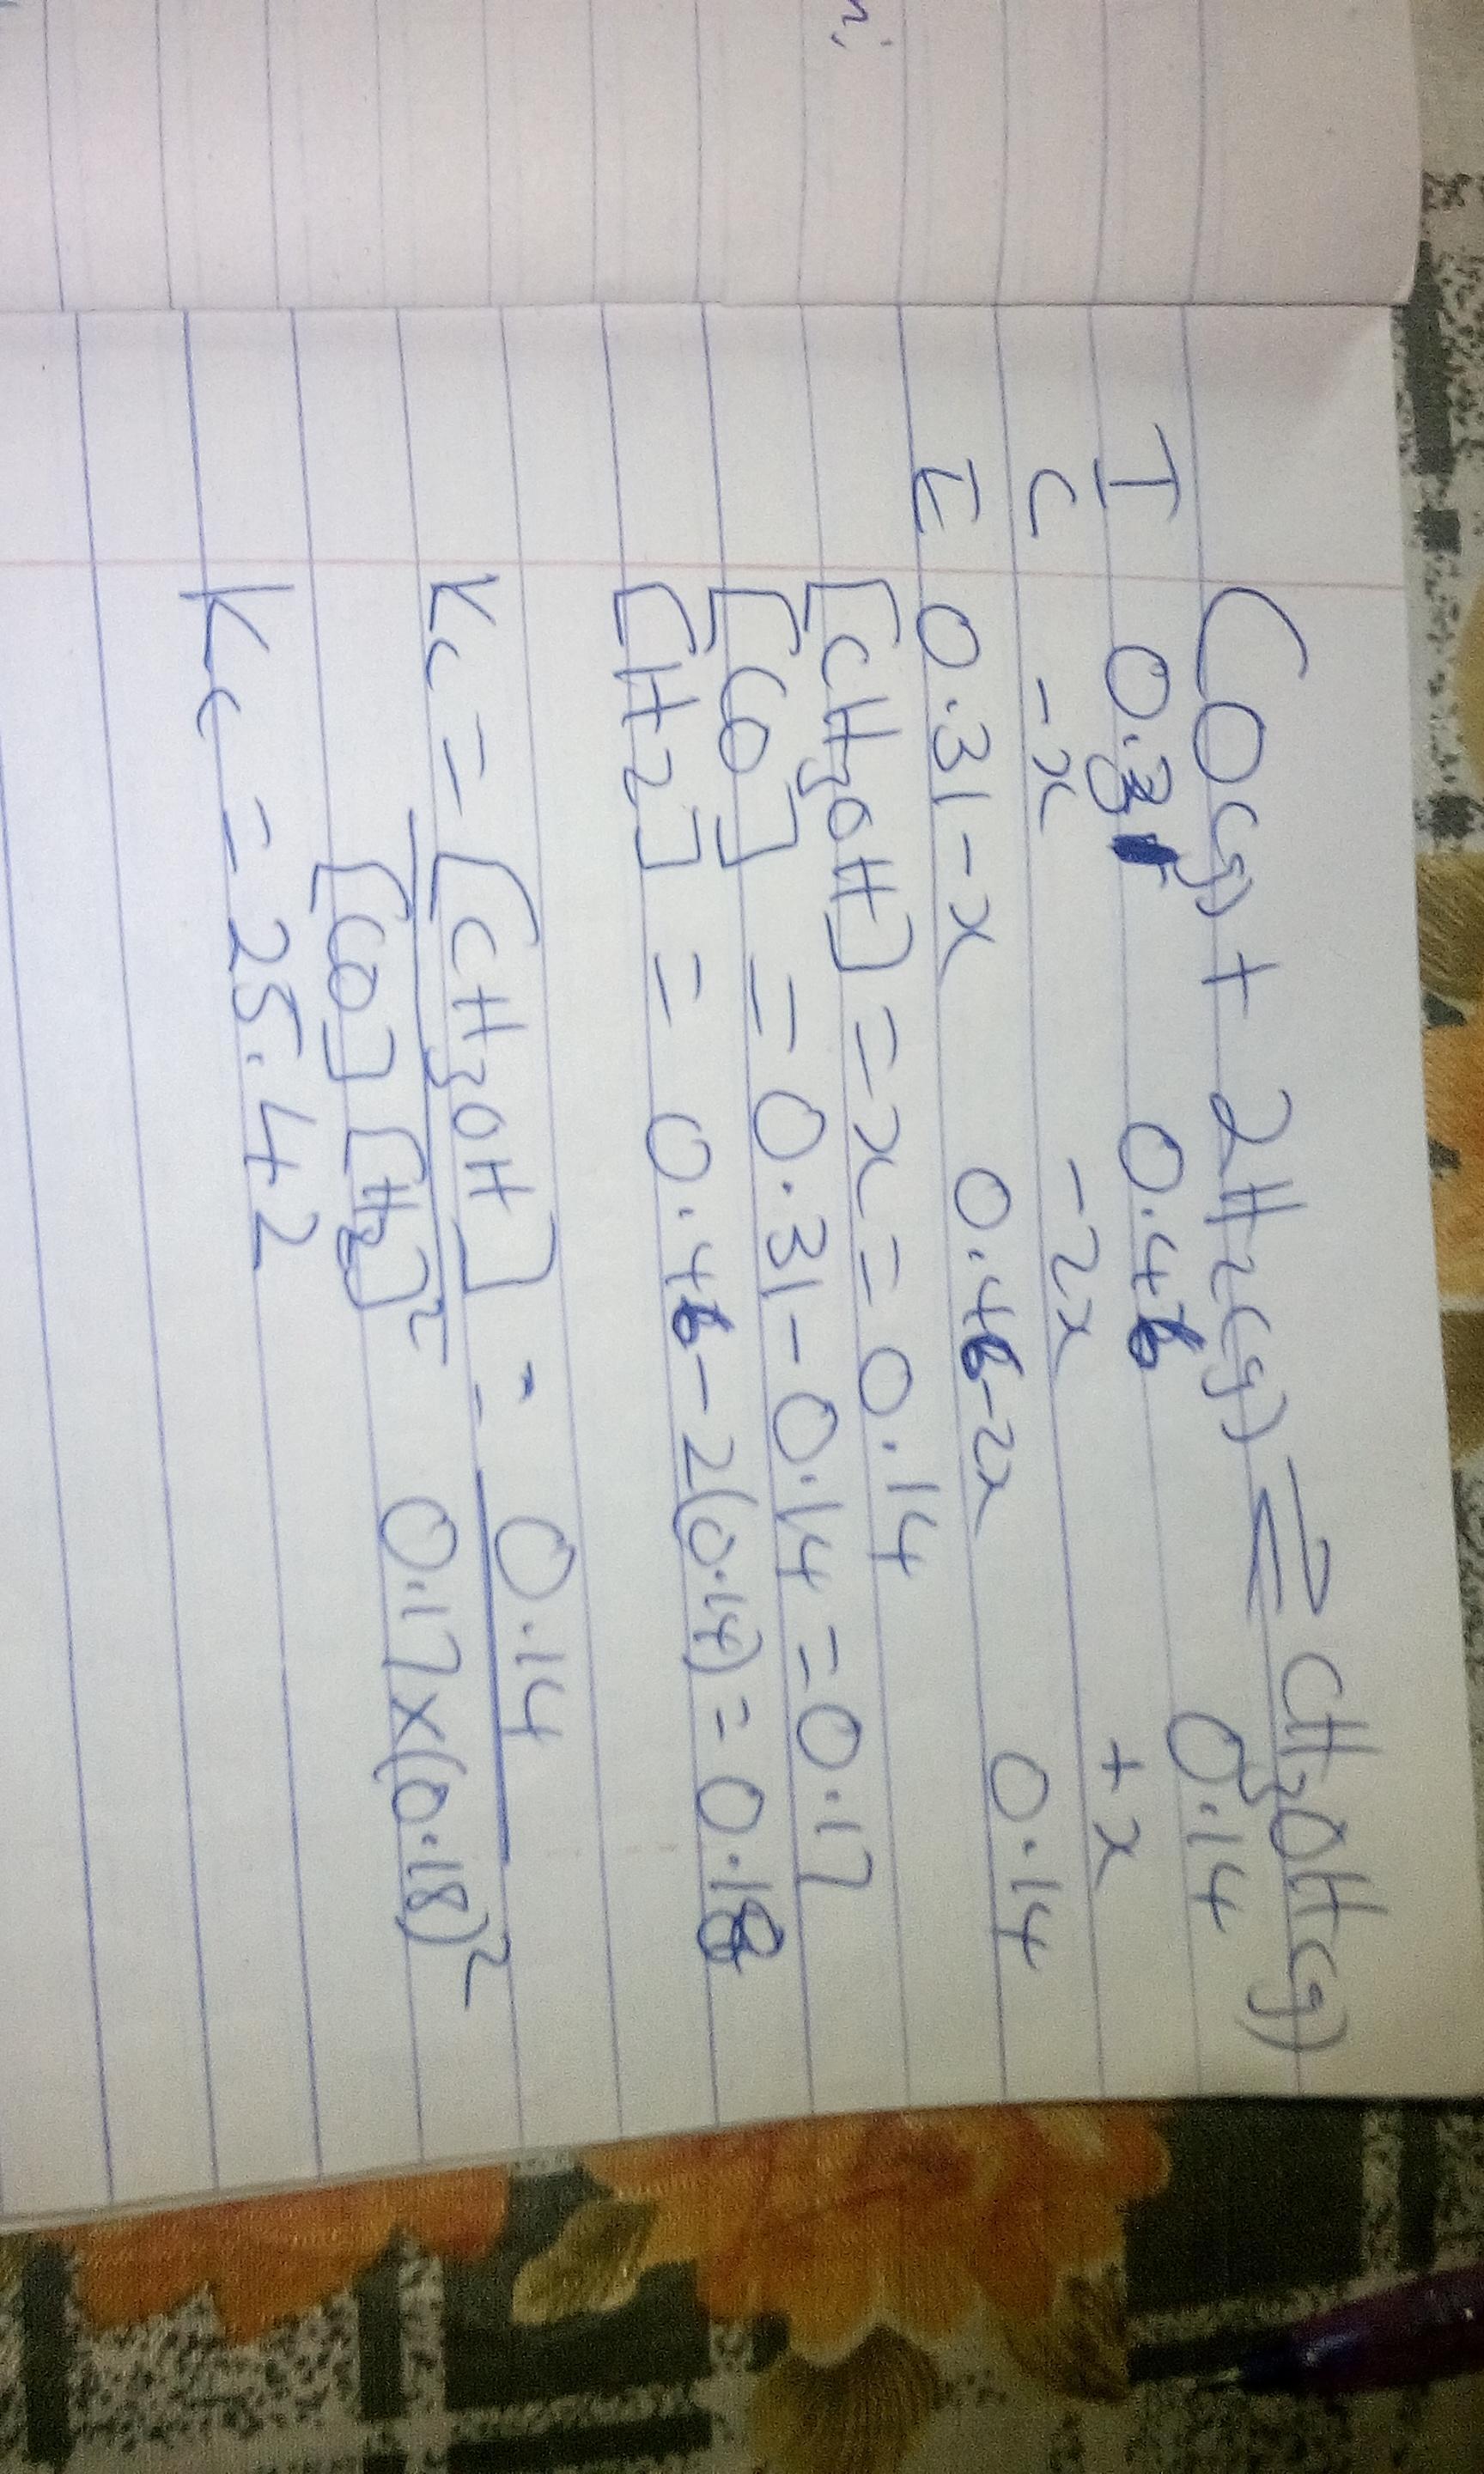 CO(g) + 2H2(g) ⇌ CH3OH(g)
I 0.31 0.46 0.14
C -x -2x +x
E 0.31-x 0.46-2x 0.14
[CH3OH] = x = 0.14
[CO] = 0.31 - 0.14 = 0.17
[H2] = 0.46 - 2(0.14) = 0.18
Kc = [CH3OH] / [CO] [H2]² = 0.14 / 0.17 × (0.18)²
Kc = 25.42